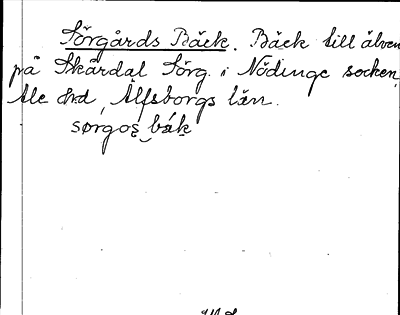 Sörgårds Bäck. Bäck till älven
på Skårdal Sörg. i Nödinge socken,
Ale hrd, Älfsborgs län.
sørgos bäk